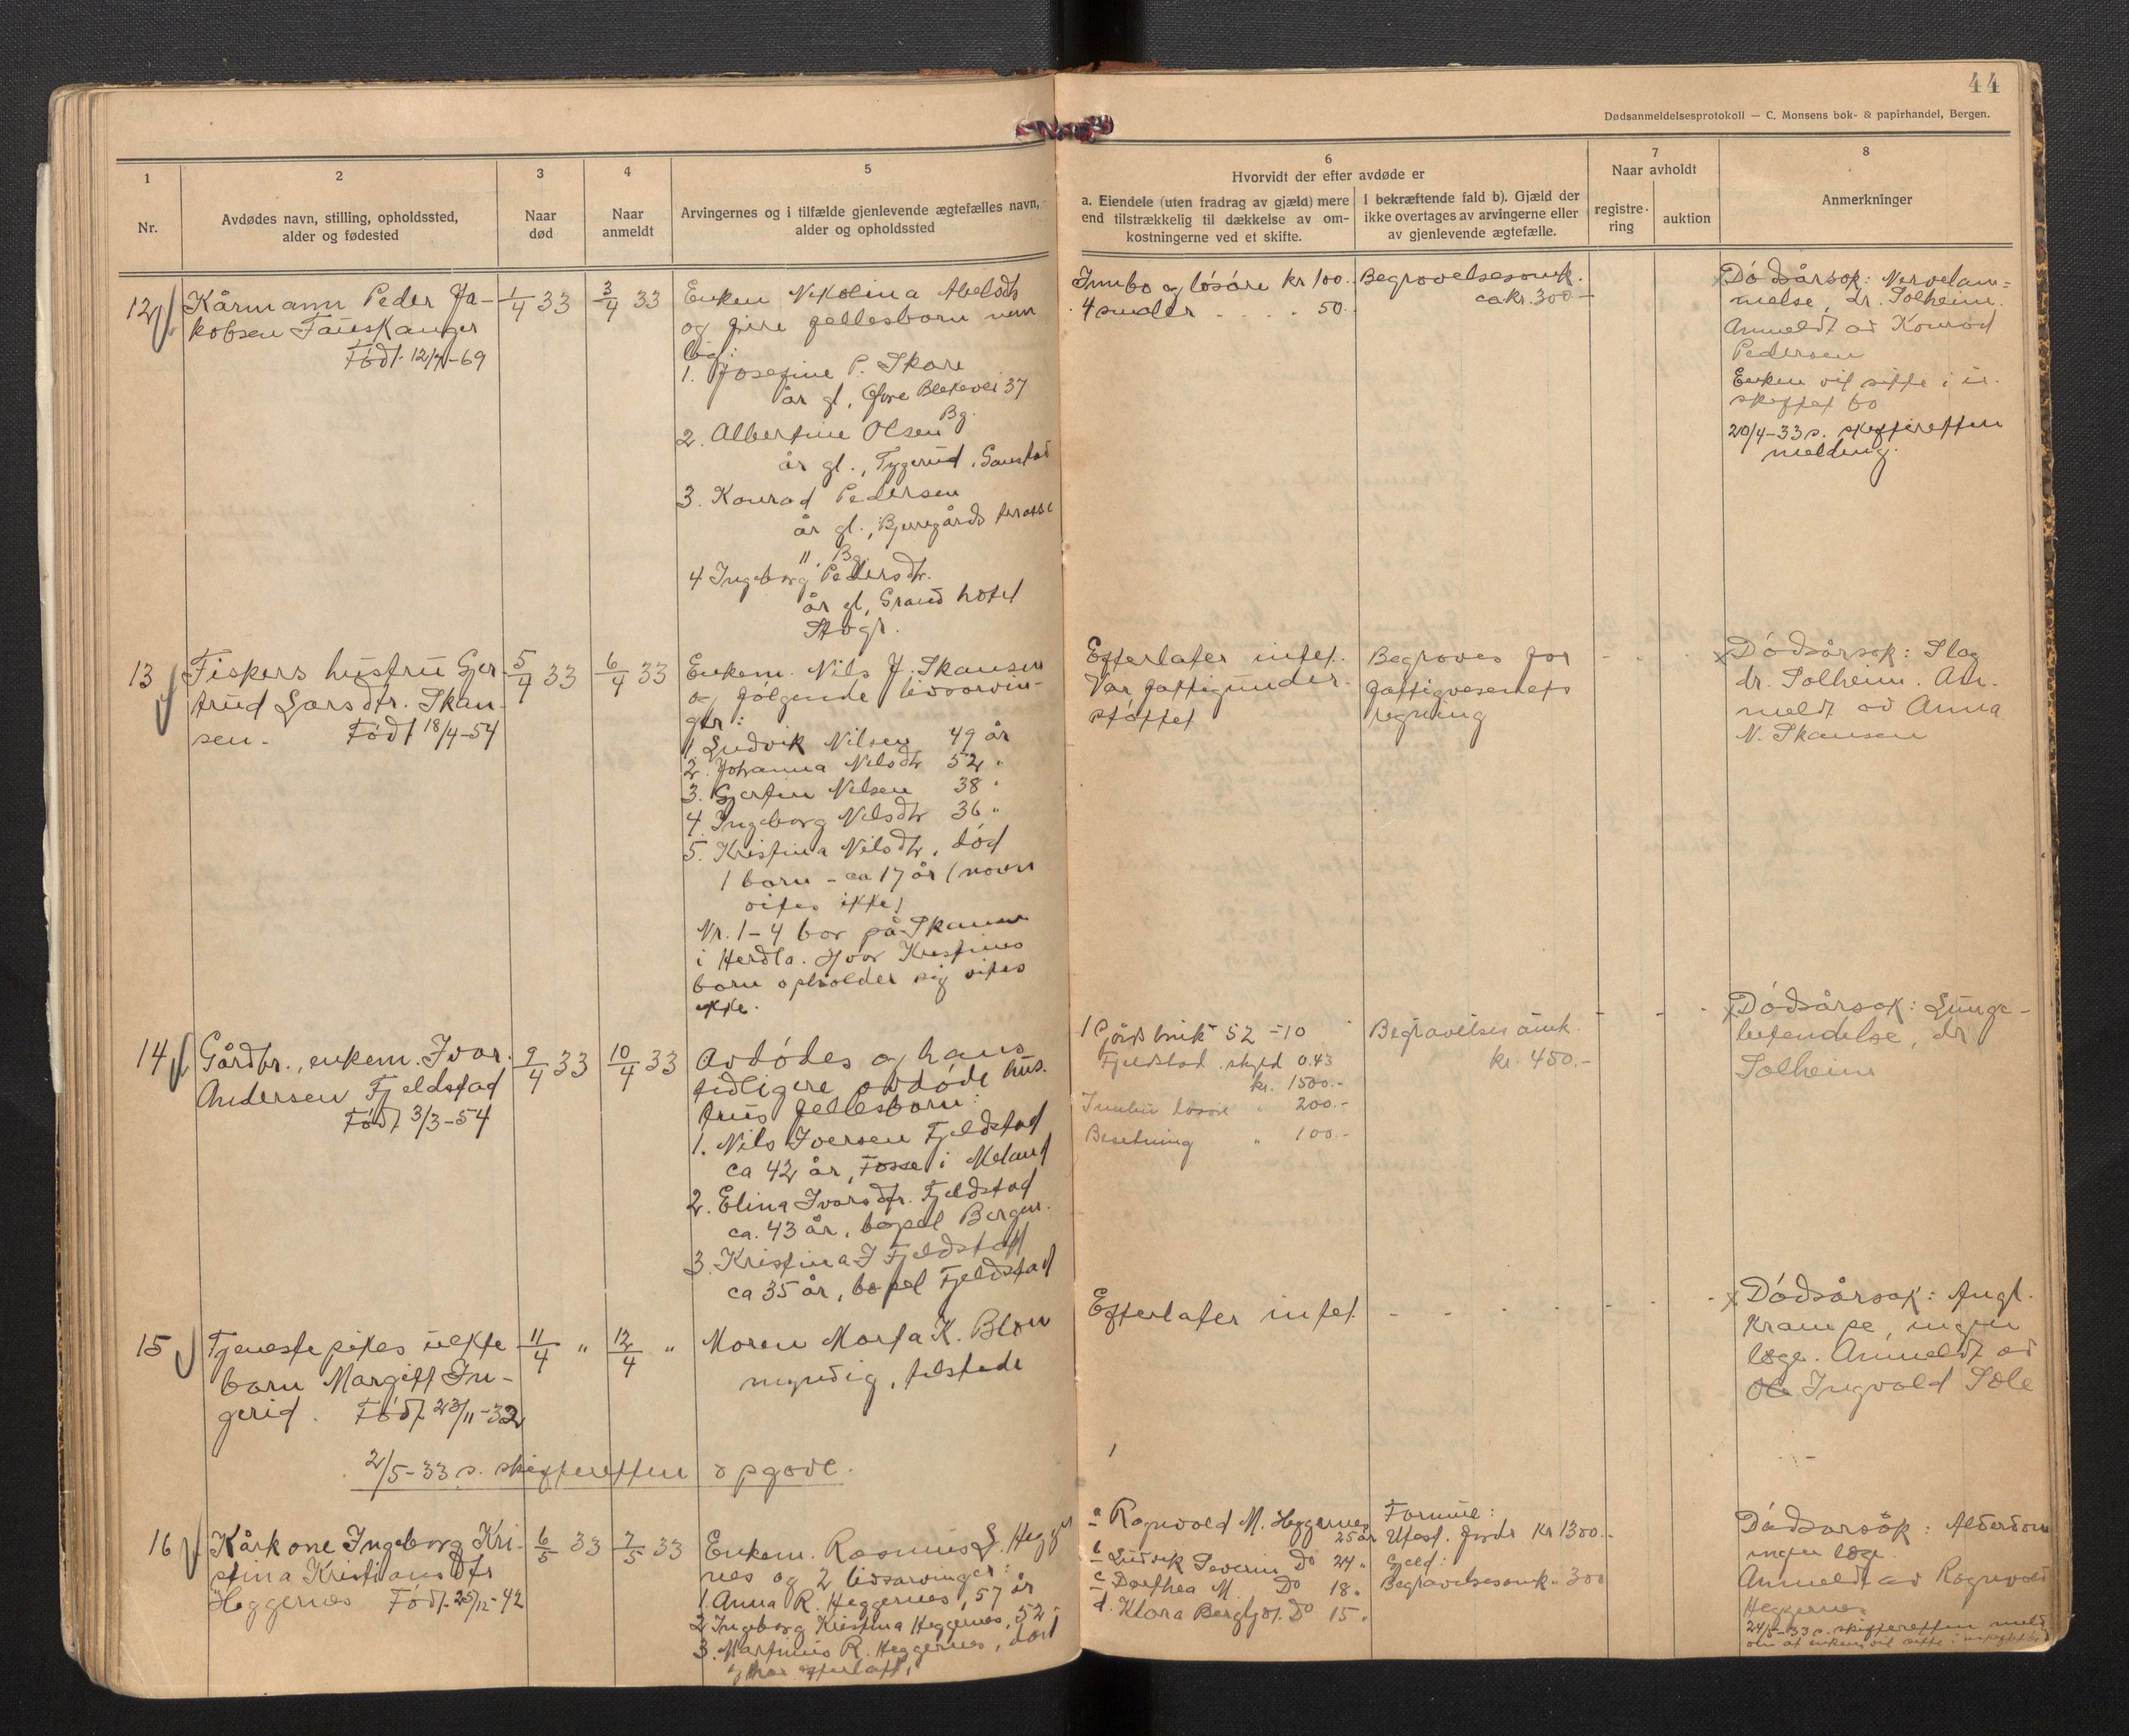 44
Dødsanmeldelsesprotokoll — C. Monsens bok- & papirhandel, Bergen.
1
Nr.
2
Avdødes navn, stilling, opholdssted,
alder og fødested
3
Naar
død
4
Naar
anmeldt
5
Arvingernes og i tilfælde gjenlevende ægtefælles navn,
alder og opholdssted
6
Hvorvidt der efter avdøde er
a. Eiendele (uten fradrag av gjæld) mere
end tilstrækkelig til dækkelse av om-
kostningerne ved et skifte.
I bekræftende fald b). Gjæld der
ikke overtages av arvingerne eller
av gjenlevende ægtefælle.
7
Naar avholdt
registre-
ring
auktion
8
Anmerkninger
12
Kårmann Peder Ja-
kobsen Fauskanger
Født 12/7-69
1/4 33
3/4 33
Enken Nikolina Abelsdtr
og fire fellesborn nem
lig:
1. Josefine P. Skare
år gl, Øvre Blekevei 37
Bg.
2. Albertine Olsen
år gl., Gaustad
3. Konrad Pedersen
år gl., Bjerregårds terasse
" Bg.
4 Ingeborg Pedersdtr.
år gl, Grand hotel
Innbo og løsøre kr 100.
4 smaler . . . . 50.
Begravelsesomk.
ca kr. 300.-
Dødsårsak: Nervelam=
melse, dr. Solheim.
Anmeldt av Konrad
Pedersen
Enken vil sitte i u-
skiftet bo
20/4-33 s. skifteretten
melding.
13
Fiskers hustru Ger-
trud Larsdtr. Skan-
sen. Født 18/4-54
5/4 33
6/4 33
Enkem. Nils J. Skansen
og følgende livsarvin-
ger:
1 Ludvik Nilsen 49 år
2. Johanna Nilsdtr 52 "
3. Gjertine Nilsen 38 "
4. Ingeborg Nilsdtr 36 "
5. Kristina Nilsdtr, død
1 barn - ca 17 år (navn
vites ikke)
Nr. 1-4 bor på Skansen
i Herdla. Hvor Kristines
barn opholder sig vites
ikke.
Efterlater intet.
Var fattigunder-
støttet
Begraves for
fattigvesenets
regning
Dødsårsak: Slag
dr. Solheim. An-
meldt av Anna
N. Skansen
14
Gårdbr., enkem. Ivar
Andersen Fjeldstad
Født 3/3-54
9/4 33
10/4 33
Avdødes og hans
tidligere avdøde hus-
trus fellesborn:
1. Nils Iversen Fjeldstad
ca 42 år, Fosse i Meland
2. Elina Ivarsdtr. Fjeldstad
ca. 43 år, bopel Bergen.
3. Kristina I Fjeldstad
ca 35 år, bopel Fjeldstad
1 Gårdsbruk 52 - 10
Fjeldstad skyld 0.43
kr. 1500.-
Innbu løsøre " 200.-
Besetning " 100.-
Begravelses omk.
kr. 450.-
Dødsårsak: Lunge-
betendelse, dr
Solheim
15
Tjenestepikes uekte
barn Margitt In-
gerid. Født 23/11-32
11/4 "
12/4 "
Moren Marta K. Blom
myndig, tilstede
Efterlater intet
Dødsårsak: Angl.
krampe, ingen
læge. Anmeldt av
Ingvald Sole
2/5-33 s. skifteretten opgave.
16
Kårkone Ingeborg Kri-
stina Kristiansdtr
Heggernes Født 25/12-42
6/5 33
7/5 33
Enkem. Rasmus L. Hegger
nes og 2 livsarvinger:
1. Anna R. Heggernes, 57 år
2 Ingeborg Kristina Heggernes, 52 -
3. Martinus R. Heggernes, død
og har efterlatt,
a Ragnvald M. Heggernes
25 år
b Ludvik Severin Do 24 "
c Dorthea M. Do 18 "
d. Klara Bergljot Do 15 "
Formue:
Utest. fordr kr 1300.-
Gjeld:
Begravelsesomk. " 300
Dødsårsak: Alderdom
ingen læge.
Anmeldt av Ragnvald
Heggernes
24/5-33 s. skifteretten meld
om at enkem. vil sitte i uskiftet bo